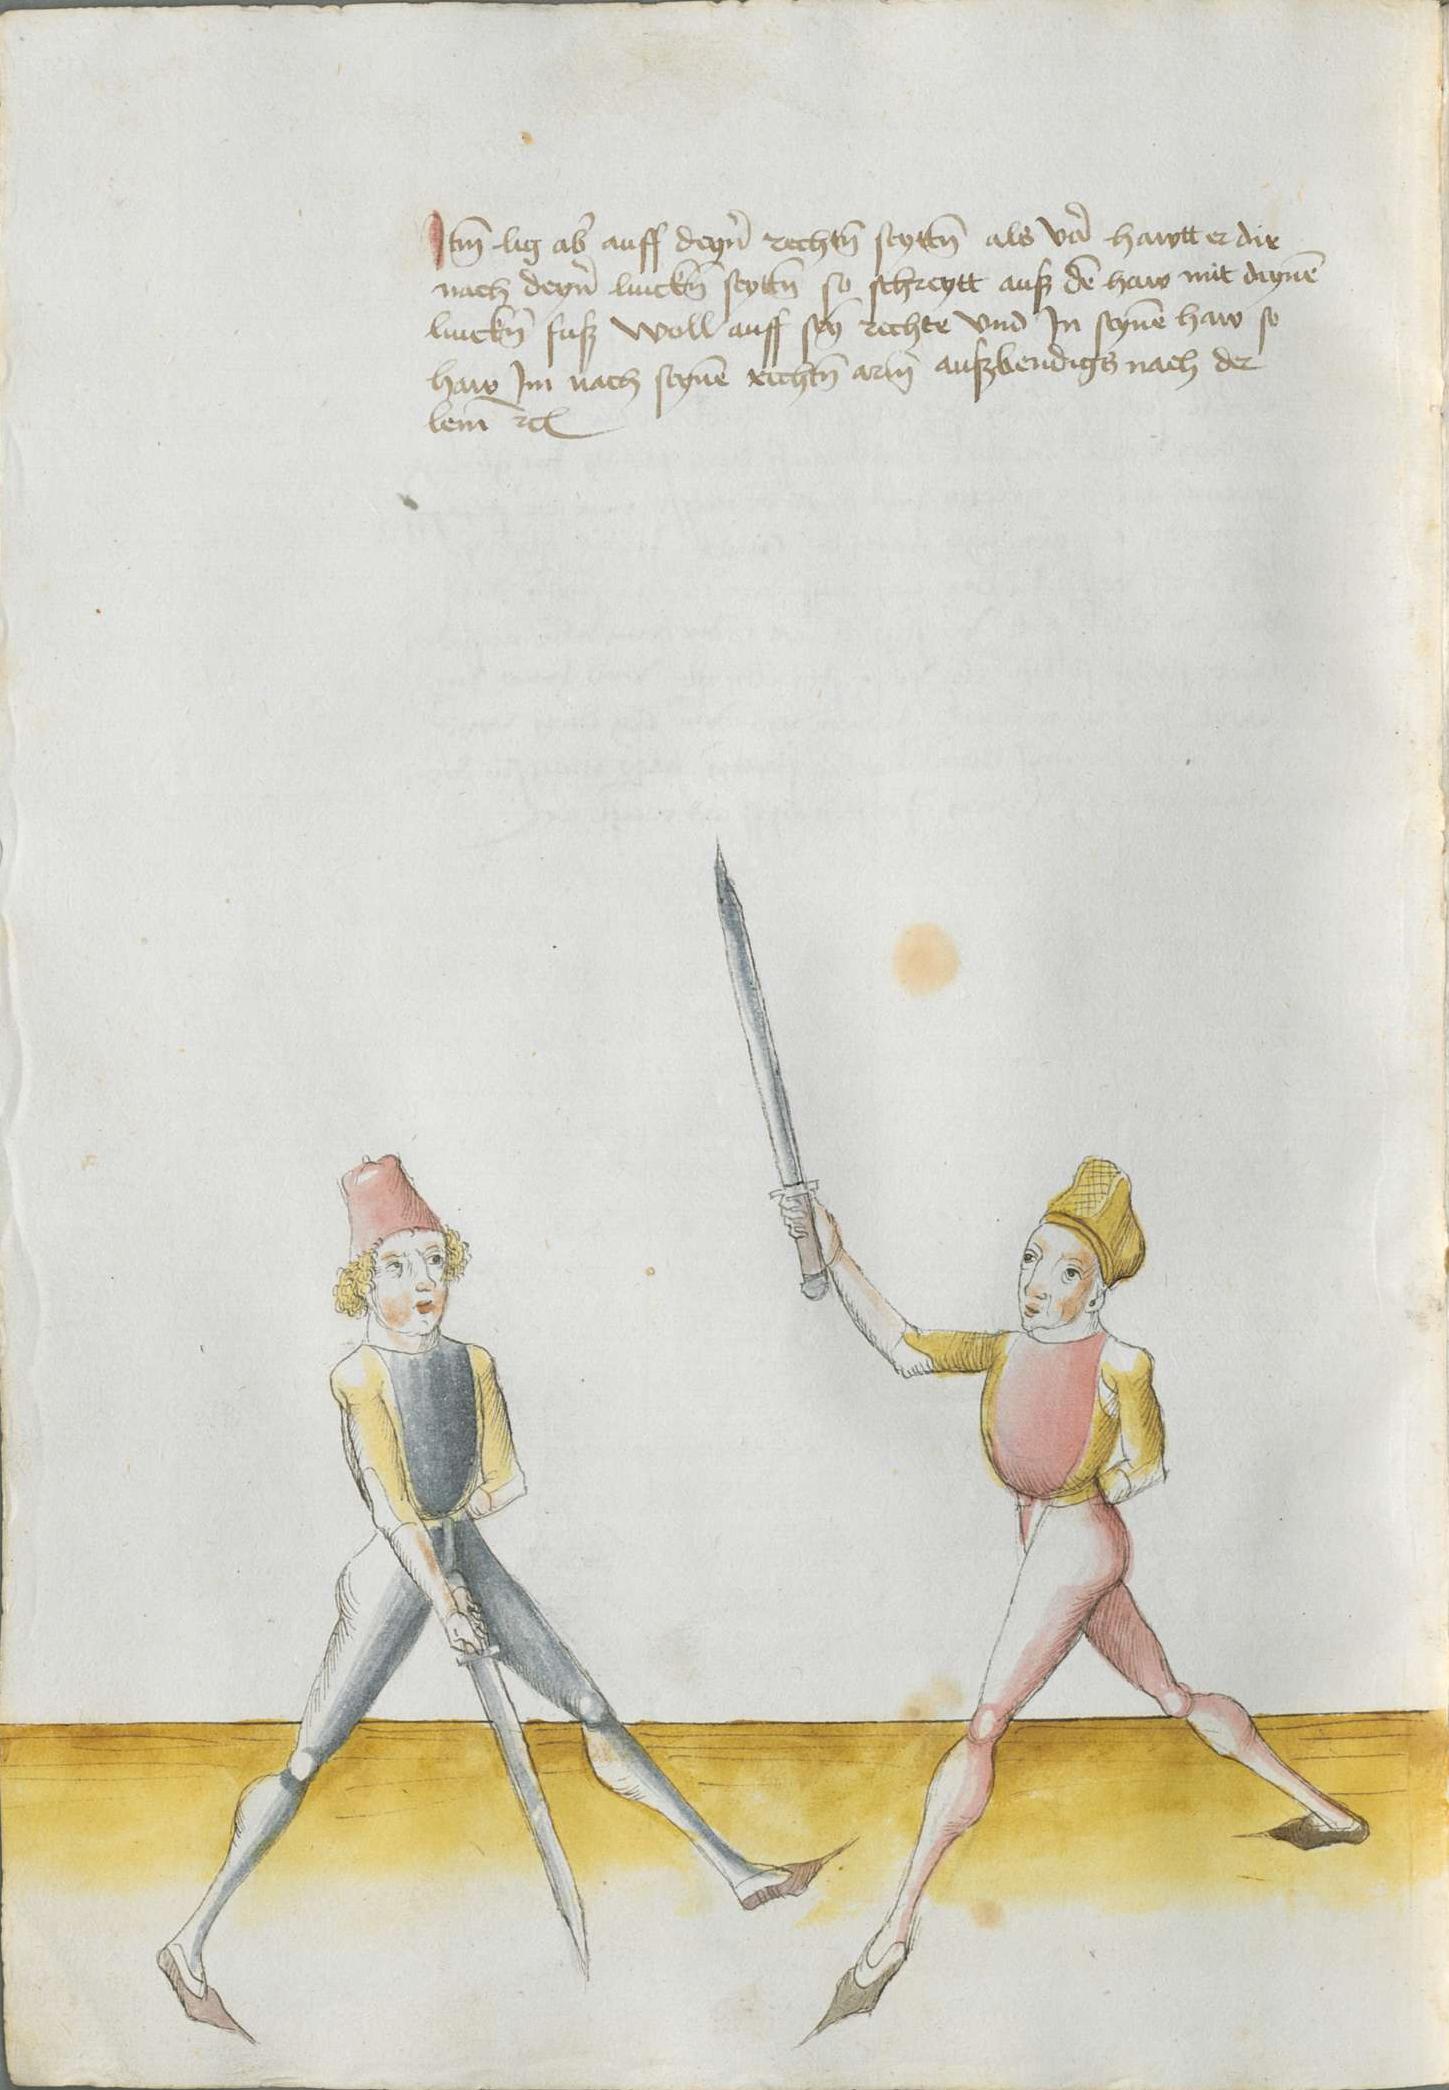 Itm̄ lig ab̾ auff deyn̄ rechtn̄ seyttn̄ als vor̄ hawtt er dir
nach deyn̄ linckn̄ seyttn̄ so schreytt auß dē haw mit deynē
linckn̄ fuß woll auff sey̅ rechte vnd In seynē haw so
haw Im nach seynē rechtn̄ arm̄ außbendigs nach der
lem̄ rc